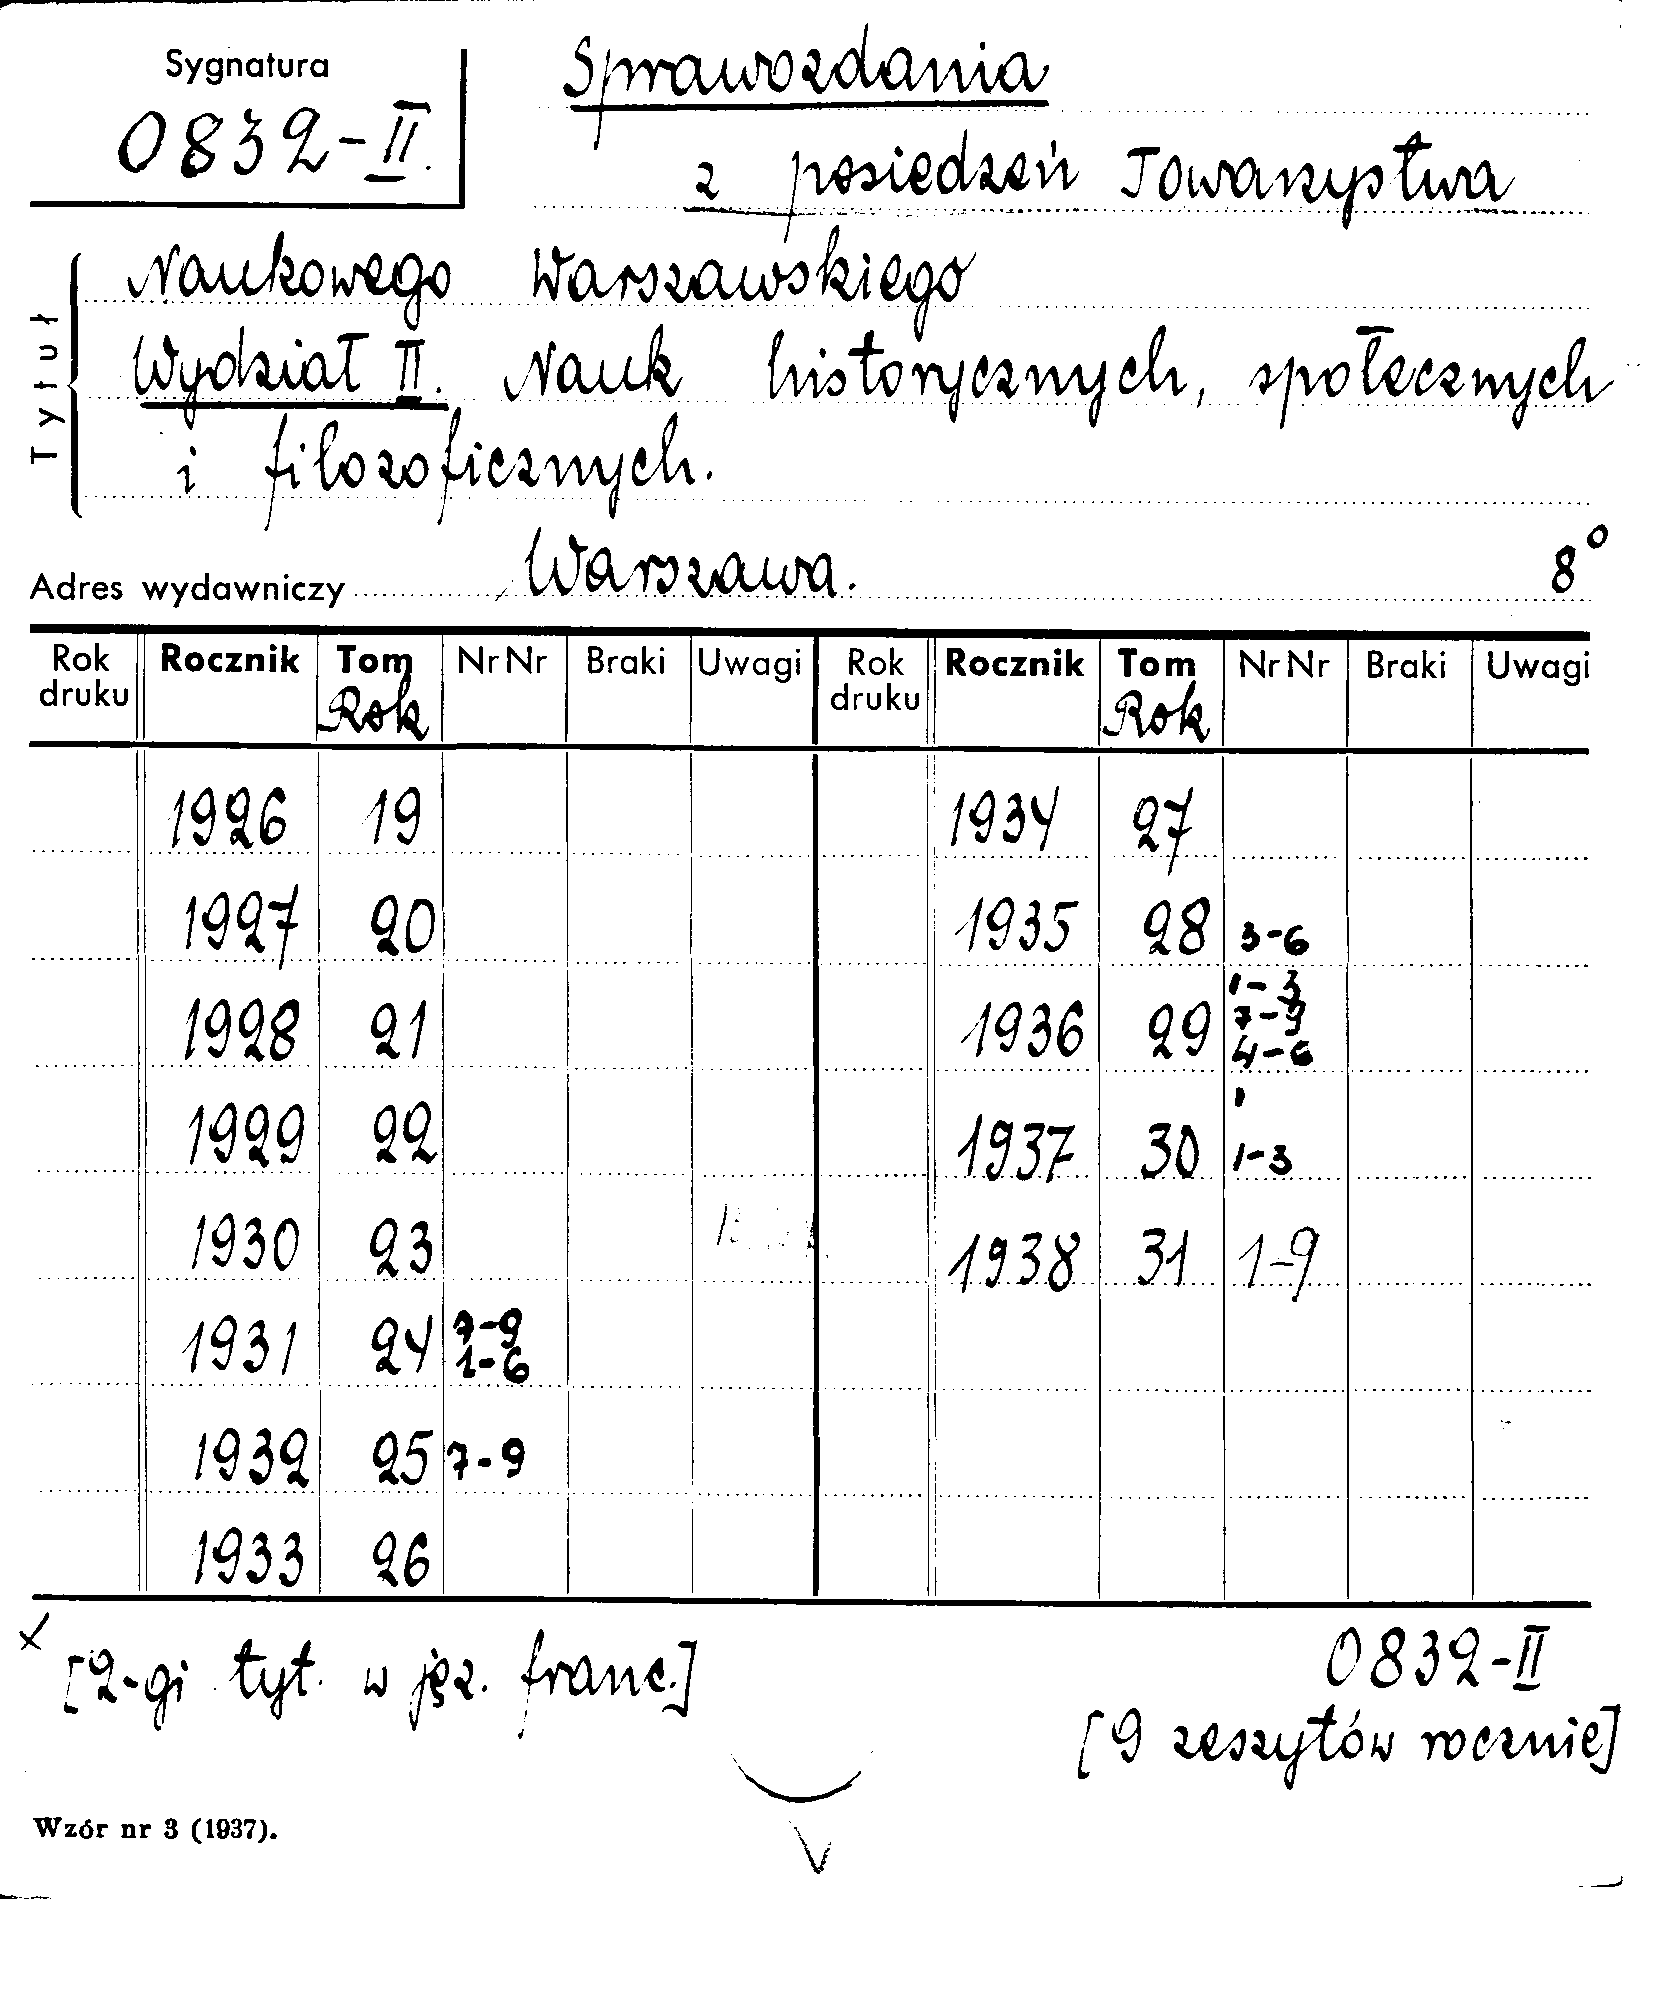 Sygnatura
0832-II.
Sprawozdania
z posiedzeń Towarzystwa
Tytuł
Naukowego Warszawskiego
Wydział II. Nauk historycznych, społecznych
i filozoficznych.
Adres wydawniczy Warszawa. 8°
Rok druku Rocznik Tom Rok NrNr Braki Uwagi Rok druku Rocznik Tom Rok NrNr Braki Uwagi
1926 19 1934 27
1927 20 1935 28 3-6
1928 21 1936 29 1-3 7-9 4-6
1929 22 1937 30 1 1-3
1930 23 1938 31 1-9
1931 24 7-9 1-6
1932 25 7-9
1933 26
x [2-gi tyt. w jęz. franc.]
0832-II
[9 zeszytów rocznie]
Wzór nr 3 (1937).